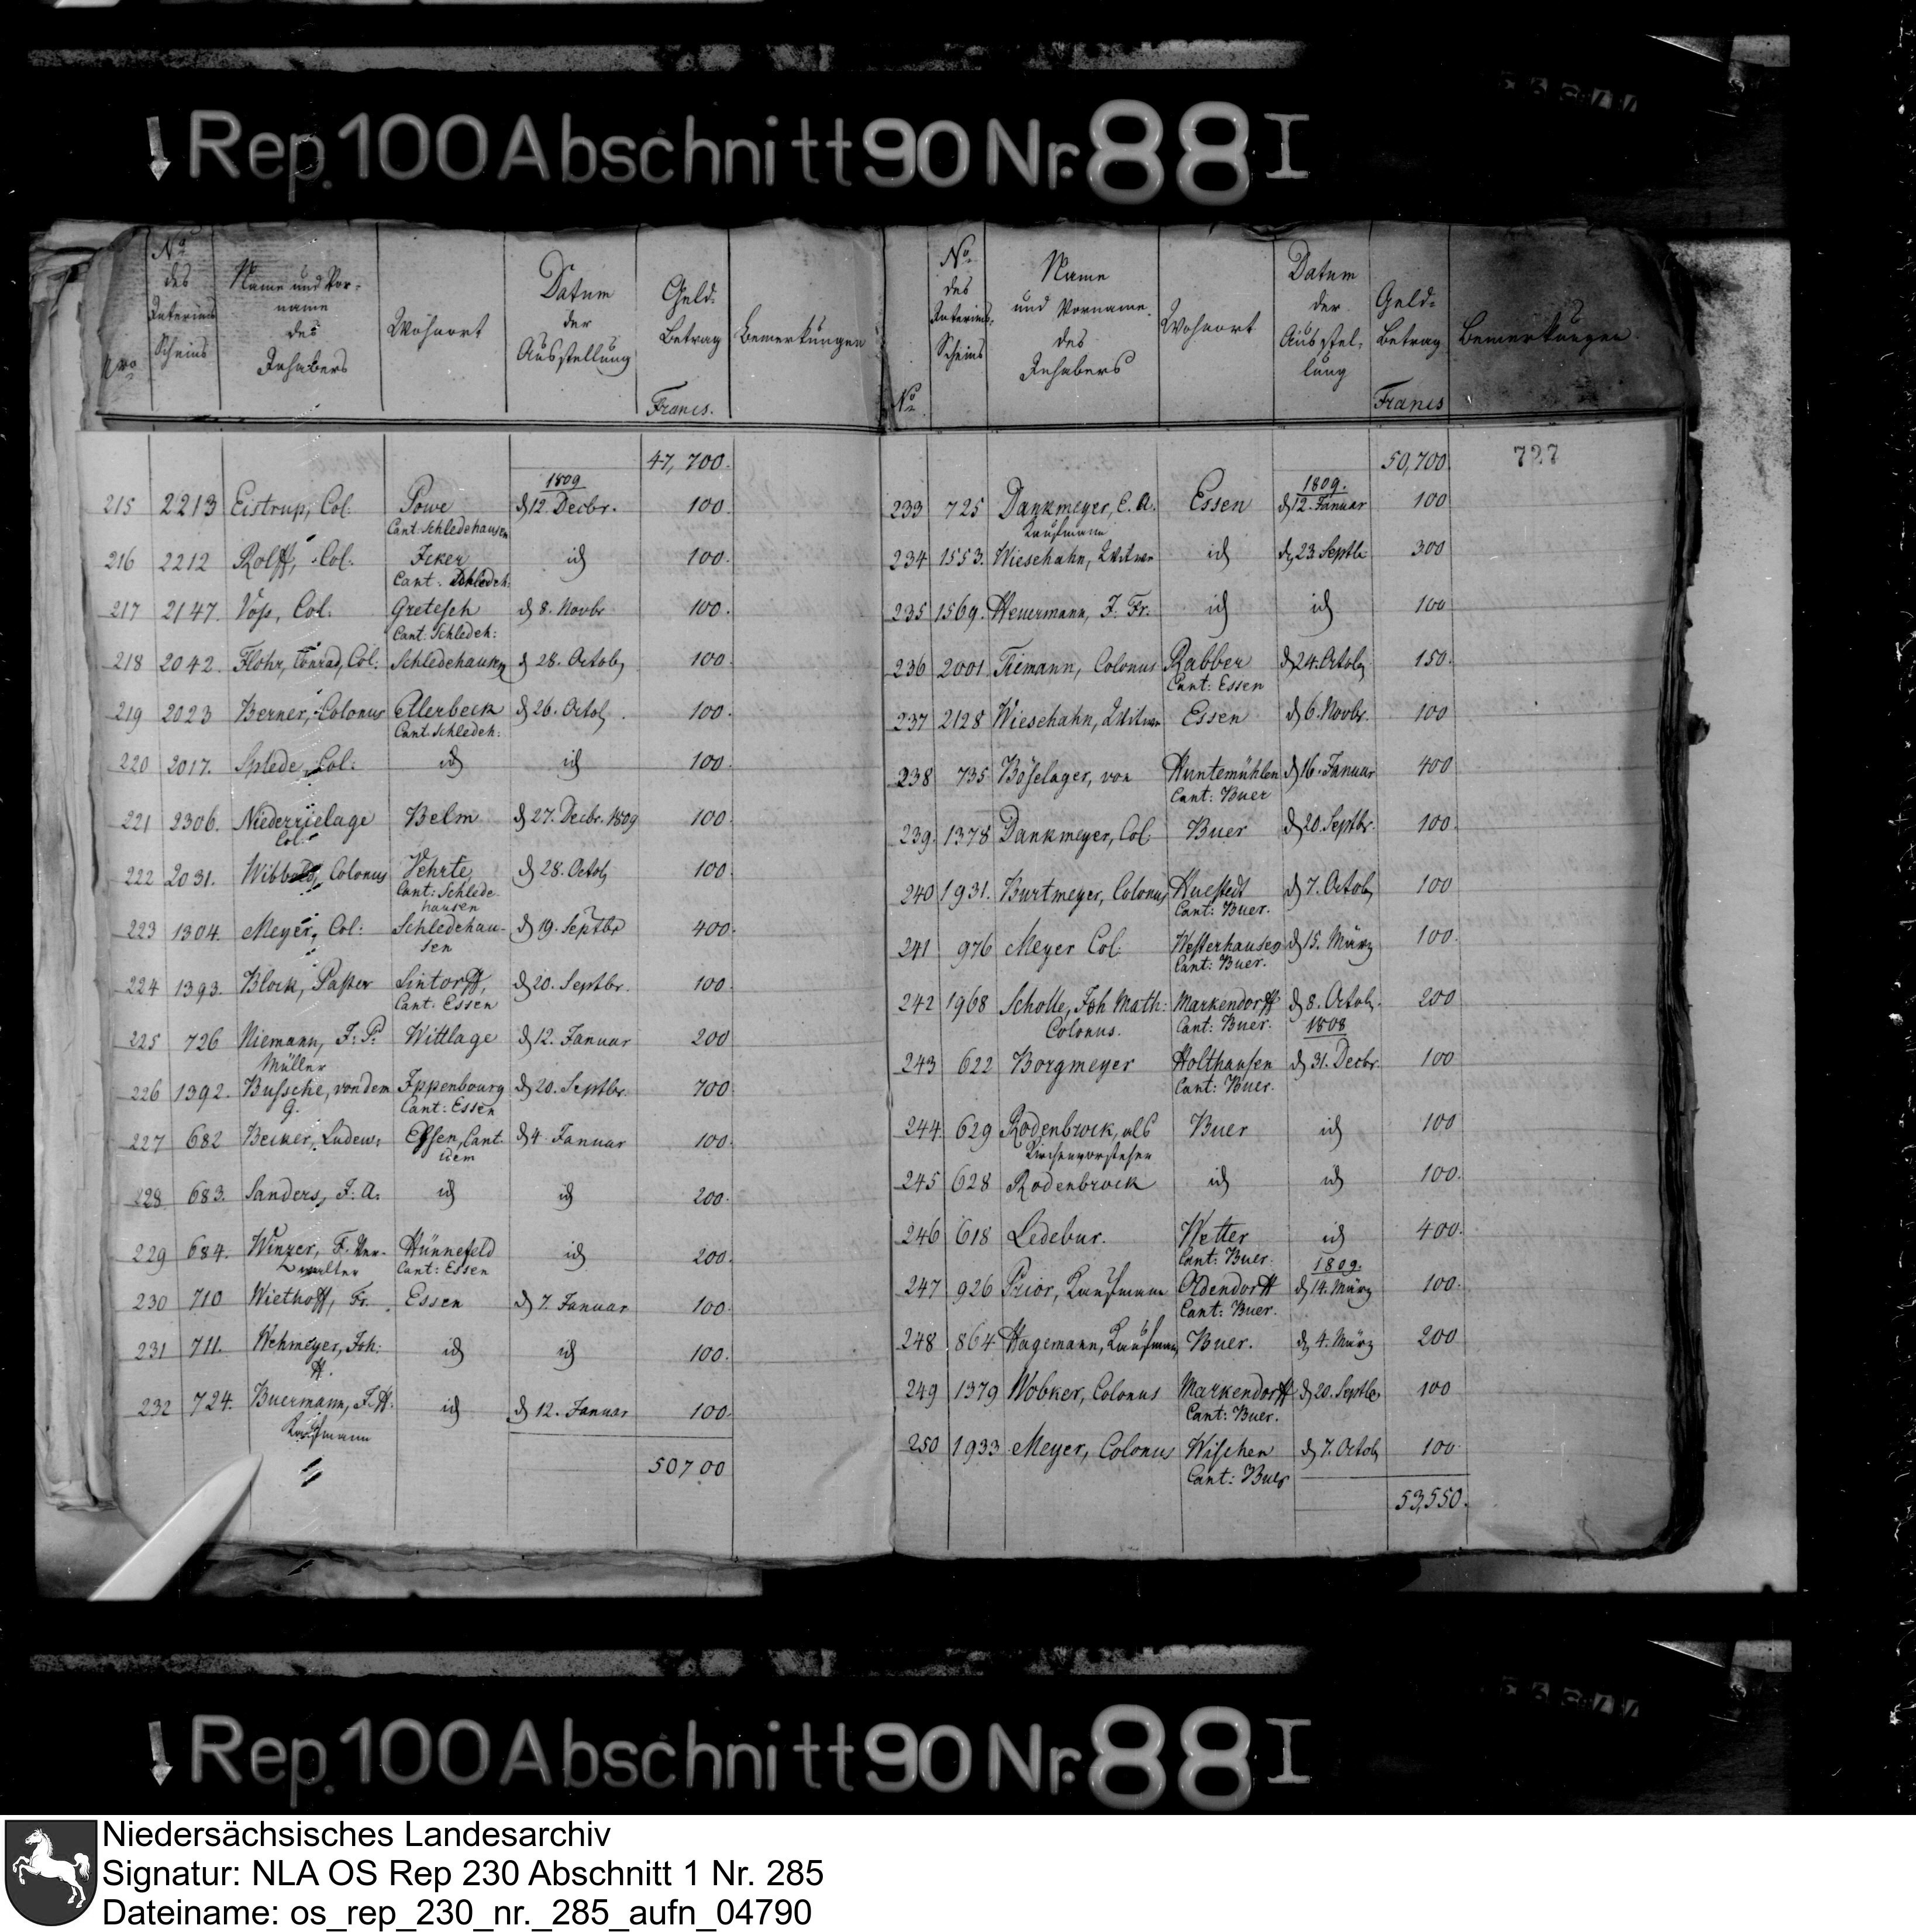 Rep. 100 Abschnitt 90 Nr. 88 I
Nro
No des Interims Scheins
Name und Vorname des Inhabers
Wohnort
Datum der Ausstellung
Geld-Betrag Francs.
Bemerkungen
47,700.
1809
215 2213 Eistrup, Col. Powe d 12 Decbr. 100.
Cant. Schledehausen
216 2212 Rolff, Col. Icker id 100.
Cant. Schledeh:
217 2147. Voß, Col. Gretesch d 8. Novbr 100.
Cant. Schledeh:
218 2042. Flohr, Conrad, Col. Schledehausen d 28. Octob 100.
219 2023 Berner, Colonus Ellerbeck d 26. Octob. 100.
Cant. Schledeh:
220 2017. Splede, Col. id id 100.
221 2306. Niederrielage Belm d 27. Decbr. 1809 100.
Col.
222 2031. Colonus Vehrte d 28. Octob 100.
Cant: Schlede-
hausen
223 1304. Meyer, Col: Schledehau- d 19. Septbr 400.
sen
224 1393. Block, Pastor Lintorff, d 20. Septbr. 100.
Cant: Essen
225 726 Niemann, F. P. Wittlage d 12. Januar 200
Müller
226 1392. Bussche, von dem Ippenbourg d 20. Septbr. 700
G. Cant: Essen
227 682 Becker, Ludew: Essen, Cant. d 4 Januar 100.
idem
228 683. Sanders, F. A. id id 200.
229 684. Winzer, F. Ver- Hünnefeld id 200.
walter Cant: Essen
230 710 Wiethoff, Fr. Essen d 7. Januar 100.
231 711. Wehmeyer, Joh: id id 100.
H.
232 724. Buermann, F. H. id d 12. Januar 100.
Kaufmann
50700
No
No des Interims-Scheins
Name und Vorname des Inhabers
Wohnort
Datum der Ausstellung
Geld-Betrag Francs
Bemerkungen
50,700 727
1809.
233 725 Dankmeyer, C. A. Essen d 12. Januar 100
Kaufmann
234 1553. Wiesehahn, Witwe id d 23 Septb 300
235 1569. Heuermann, F. Fr. id id 100
236 2001 Tiemann, Colonus Rabber d 24. Octob 150.
Cant: Essen
237 2128 Wiesehahn, Witwe Essen d 6. Novbr. 100
238 735 Böselager, von Huntemühlen d 16. Januar 400
Cant: Buer
239. 1378 Dankmeyer, Col. Buer d 20. Septbr. 100.
240 1931. Burtmeyer, Colonus Huestedt d 7. Octob 100
Cant: Buer.
241 976 Meyer Col. Westerhausen d 15. März 100.
Cant: Buer.
242 1968 Scholle, Joh Math: Markendorff d 8. Octob. 200
Colonus. Cant: Buer.
1808
243 622 Borgmeyer Holthausen d 31. Decbr. 100
Cant: Buer.
244 629 Rodenbrock, als Buer id 100
Kirchenvorsteher
245 628 Rodenbrock id id 100.
246 618 Ledebur. Wetter id 400.
Cant: Buer.
1809.
247 926 Prior, Kaufmann Oldendorff d 14. März 100.
Cant: Buer.
248 864 Hagemann, Kaufmann Buer. d 4. März 200
249 1379 Wobker, Colonus Markendorff d 20. Septbr 100
Cant: Buer.
250 1933 Meyer, Colonus Wischen d 7. Octob 100.
Cant: Buer
53,550.
Rep. 100 Abschnitt 90 Nr. 88 I
Niedersächsisches Landesarchiv
Signatur: NLA OS Rep 230 Abschnitt 1 Nr. 285
Dateiname: os_rep_230_nr._285_aufn_04790